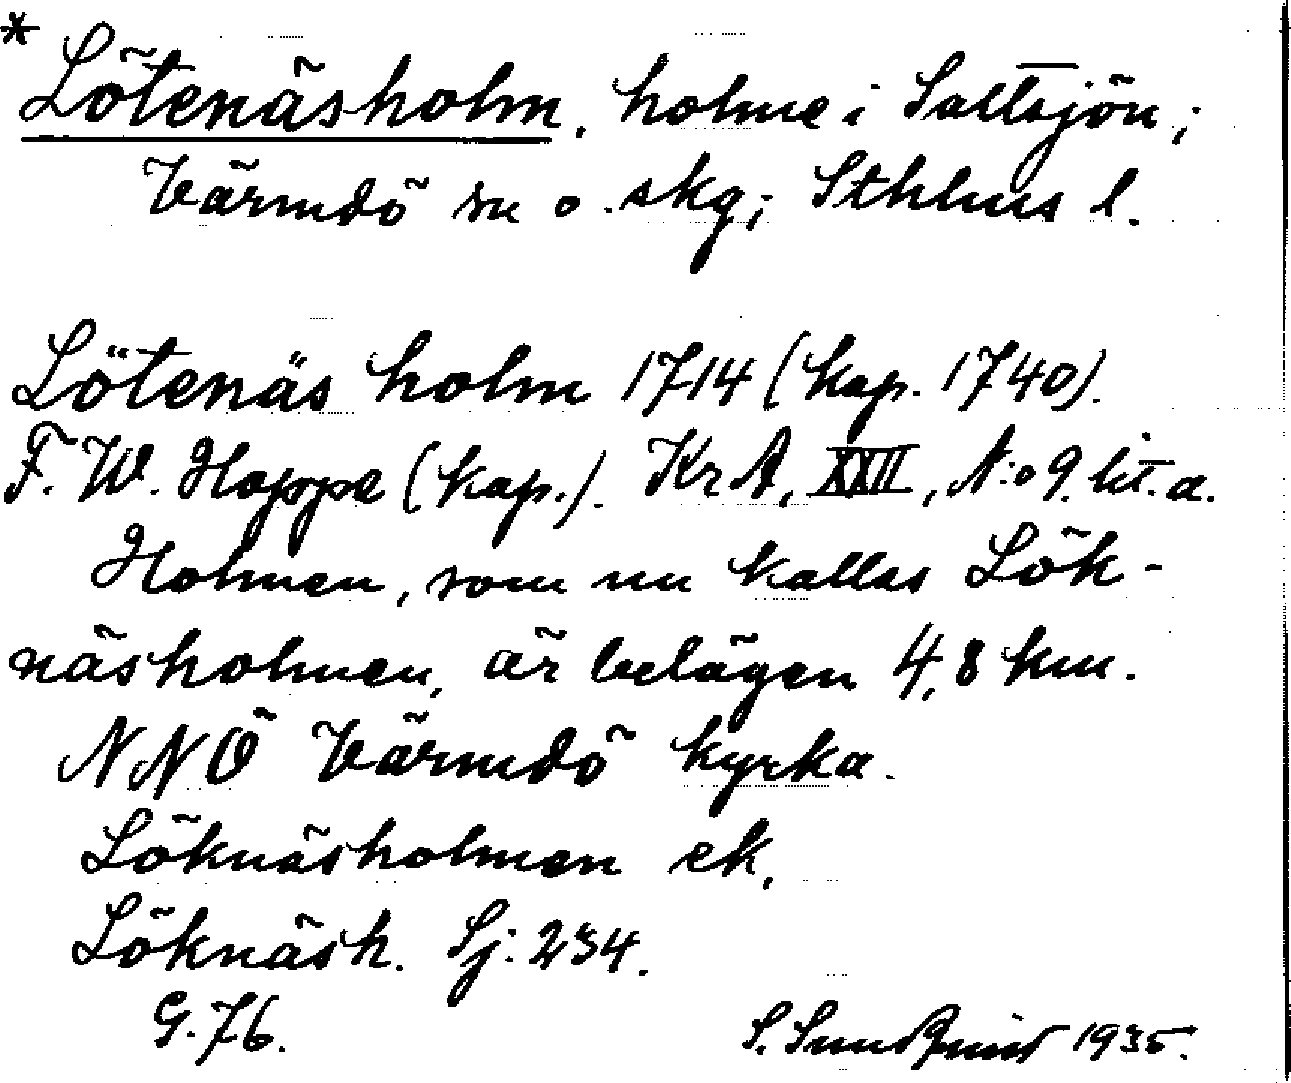 * Lötenäsholm, holme i Saltsjön;
Värmdö sn o. skg; Sthlms l.
Lötenäs holm 1714 (kop. 1740).
F. W. Hoppe (kop.). KrA, XXII, N:o 9. lit. a.
Holmen, som nu kallas Lök-
näsholmen, är belägen 4,8 km.
NNO Värmdö kyrka.
Löknäsholmen ek.
Löknäsh. Sj: 234.
G. 76.
S. Sundquist 1935.